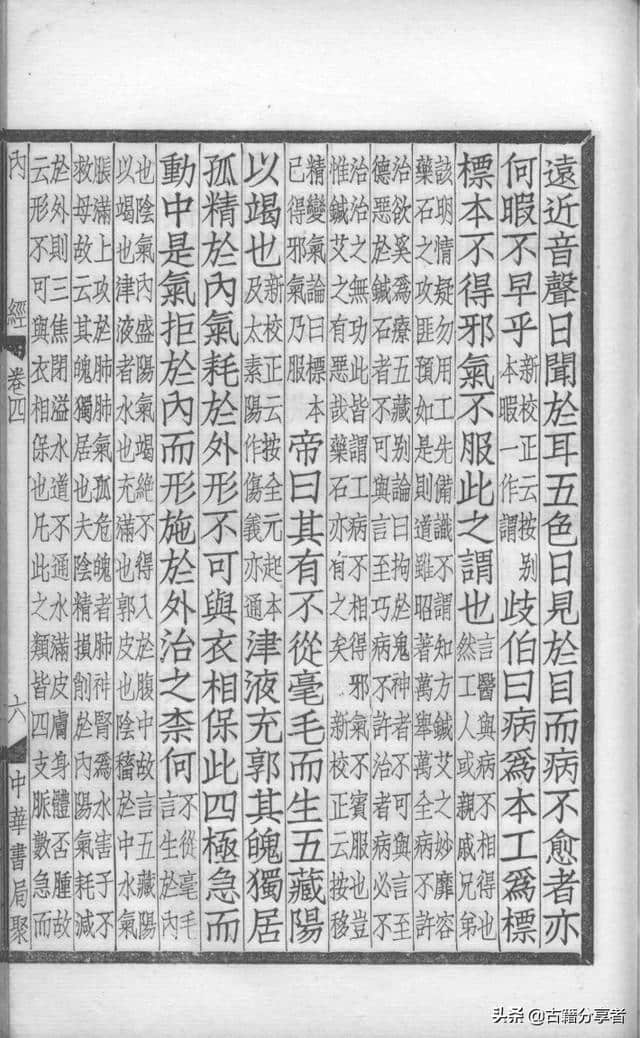 遠近音聲日聞於耳五色日見於目而病不愈者亦
何暇不早乎新校正云按別本暇一作謂歧伯曰病爲本工爲標
標本不得邪氣不服此之謂也言醫與病不相得也然工人或親戚兄弟
該明情疑勿用工先備識不謂知方鍼艾之妙靡容
藥石之攻匪預如是則道雖昭著萬舉萬全病不許
治欲奚爲療五藏別論曰拘於鬼神者不可與言至
德惡於鍼石者不可與言至巧病不許治者病必不
治治之無功此皆謂工病不相得邪氣不賓服也豈
惟鍼艾之有惡哉藥石亦有之矣 新校正云按移
精變氣論曰標本已得邪氣乃服帝曰其有不從毫毛而生五藏陽
以竭也新校正云按全元起本及太素陽作傷義亦通津液充郭其魄獨居
孤精於內氣耗於外形不可與衣相保此四極急而
動中是氣拒於內而形施於外治之柰何不從毫毛言生於內
也陰氣內盛陽氣竭絕不得入於腹中故言五藏陽
以竭也津液者水也充滿也郭皮也陰稸於中水氣
脹滿上攻於肺肺氣孤危魄者肺神腎爲水害子不
救母故云其魄獨居也夫陰精損削於內陽氣耗減
於外則三焦閉溢水道不通水滿皮膚身體否腫故
云形不可與衣相保也凡此之類皆四支脈數急而
內經 卷四 六 中華書局聚
头条 @古籍分享者